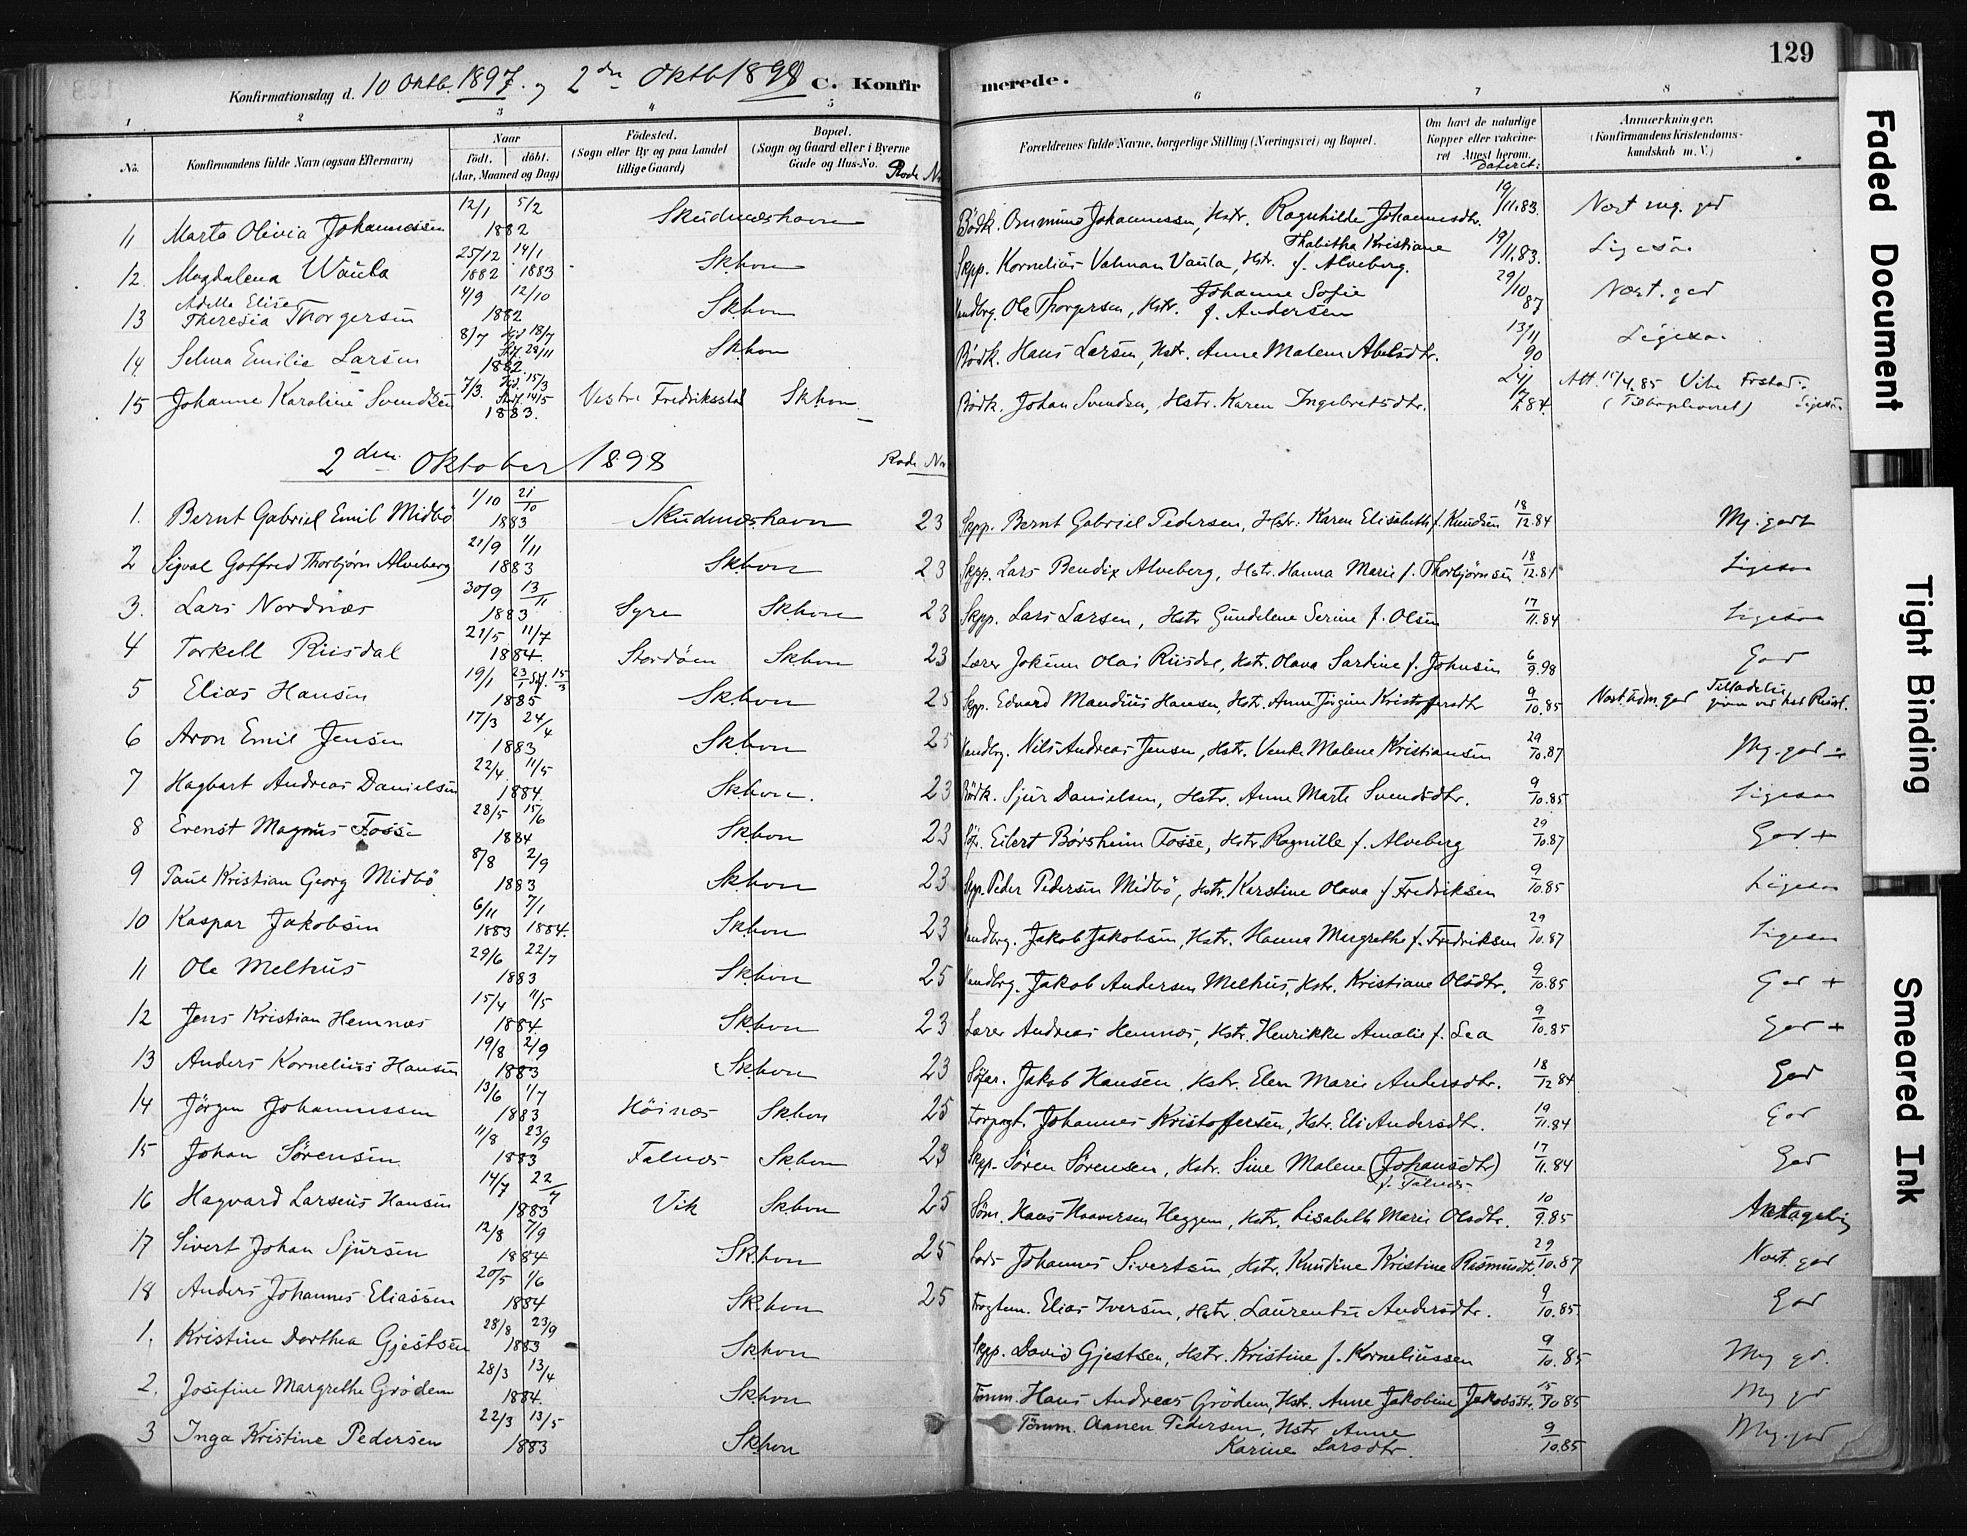 129
Konfirmationsdag d. 10 Oktb. 1897. og 2den Oktb 1898 C. Konfirmerede.
1 2 3 4 5 6 7 8
No. Konfirmandens fulde Navn (ogsaa Efternavn) Naar født, døbt. (Aar, Maaned og Dag) Fødested. (Sogn eller By og paa Landet tillige Gaard) Bopæl. (Sogn og Gaard eller i Byerne Gade og Hus-No. Rode No Forældrenes fulde Navne, borgerlige Stilling (Næringsvei) og Bopæl. Om havt de naturlige Kopper eller vakcineret Attest herom. Dateret: Anmærkninger. (Konfirmandens Kristendomskundskab m. V.)
11 Marta Olivia Johannessen 12/1 5/2 1882 Skudneshavn Bødk. Johannessen, Hstr. Ragnhilde Johannesdtr. 19/11.83. Næst mg. god
12. Magdalena Waula 25/12 1882 14/1 1883 Skhvn Skpp. Kornelius Valman Vaula, Hstr. Thabitha Kristiane f. Alveberg. 19/11.83. Ligesaa
13 Adelle Elise Theresia Thorgersen 4/9 12/10 1882 Skhvn Vandbrg. Ole Thorgersen, Hstr. Johanne Sofie f. Andersen 29/10 87 Næst. god
14 Selma Emilia Larsen 8/7 Hd 18/7 Stf. 28/11 1882. Skhvn Bødk. Hans Larsen, Hstr. Anne Malene Abelsdtr. 13/11 90 Ligesaa
15 Johanne Karoline Svendsen 7/3. Hd. 15/3 Stf. 14/5 1883. Vestre Fredriksstad Skhvn Bødk. Johan Svendsen, Hstr. Karen Ingebretsdtr. 84. Att. 15/4.85 Vibe Frstad. (Tilbageleveret) Ligesaa
2den Oktober 1898 Rode No
1. Bernt Gabriel Emil Midbø 1/10 21/10 1883 Skudneshavn 23 Skpp. Bernt Gabriel Pedersen, Hstr. Karen Elisabeth f. Knudsen 18/12.84 Mg. godt
2 Sigval Gotfred Thorbjørn Alveberg 21/9 1/11 1883 Skhvn 23 Skpp. Lars Bendix Alveberg, Hstr. Hanna Marie f. Thorbjørnsen 18/12.84 Ligesaa
3. Lars Nordnæs 30/9 13/11 1883 Syre Skhvn 23 Skpp. Lars Larsen, Hstr Gundelene Serine f. Olsen 17/11.84 Ligesaa
4 Torkell Riisdal 21/5 11/7 1884. Stordøen Skhvn 23 Lærer Jokum Olai Riisdal, Hstr. Olava Sardine f. Johnsen 6/9.98 God
5 Elias Hansen 19/1 23/1 Stf. 15/3 1885 Skhvn 25 Skpp. Edvard Mandius Hansen, Hstr. Anne Jørgine Kristoffersdtr 9/10.85 Næst udm. god Tilladelse given ved kgl Resol.
6 Aron Emil Jensen 17/3 24/4 1883 Skhvn 25 Vandbrg. Nils Andreas Jensen, Hstr. Venke Malene Kristiansen 29/10.87 Mg. god
7 Hagbart Andreas Danielsen 22/4 11/5 1884 Skhvn. 23 Bødk. Sjur Danielsen, Hstr. Anne Marte Svendsdtr. 9/10.85 Ligesaa
8 Erenst Magnus Fosse 28/5 15/6 1884 Skhvn 23 Eilert Børsheim Fosse, Hstr. Ragnille f. Alveberg 29/10.87 God +
9 Paul Kristian Georg Midbø 8/8 2/9 1883 Skhvn 23 Skpp. Peder Pedersen Midbø, Hstr. Karstine Olava f Fredriksen 9/10.85 Ligesaa
10 Kaspar Jakobsen 6/11 1883 7/1 1884. Skhvn 23 Vandbrg. Jakob Jakobsen, Hstr. Hanna Margrethe f. Fredriksen 29/10.87 Ligesaa
11 Ole Melhus 29/6 22/7 1883 Skhvn 25 Vandbrg. Jakob Andersen Melhus, Hstr. Kristiane Olsdtr. 9/10.85 God +
12 Jens Kristian Hemnæs 15/4 11/5 1884. Skhvn 23 Lærer Andreas Hemnæs, Hstr. Henrikke Amalie f. Lea 9/10.85 God +
13 Anders Kornelius Hansen 19/8 2/9 1883 Skhvn 23 Søfar. Jakob Hansen, Hstr. Elen Marie Andersdtr. 18/12 84 God
14 Jørgen Johannessen 13/6 1/7 1883 Høinæs Skhvn 25 Johannes Kristoffersen, Hstr. Eli Andersdtr. 19/11.84 God
15 Johan Sørensen 11/8 23/9 1883 Falnæs Skhvn 23 Skpp. Søren Sørensen, Hstr. Sine Malene (Johansdtr) f. Falnæs. 17/11.84 God
16 Hagvard Larseus Hansen 14/7 22/7 1883 Vik Skhvn 25 Søm. Hans Haaversen Heggem, Hstr. Lisabeth Marie Olsdtr. 10/9.85 Antagelig
17 Sivert Johan Sjursen 12/8 7/9 1884 Skhvn 25 Johannes Sivertsen, Hstr. Knudine Kristine Rasmusdtr. 29/10.87 Næst. god
18 Anders Johannes Eliassen 20/5 1/6 1884 Skhvn 25 Elias Iversen, Hstr. Laurentse Andersdtr. 9/10.85 God
1. Kristine Dorthea Gjestsen 28/8 23/9 1883 Skhvn Skpp. David Gjestsen, Hstr. Kristine f. Korneliussen 9/10.85 Mg gd.
2. Josefine Margrethe Grødem 28/3 13/4 1884. Skhvn Tømm. Hans Andreas Grødem, Hstr. Anne Jakobine Jakobsdtr. 15/10 85 Mg gd
3 Inga Kristine Pedersen 22/3 13/5 1883 Skhvn Tømm. Aanen Pedersen, Hstr Anne Karine Larsdtr. 9/10.85 Mg. god
Faded Document
Tight Binding
Smeared Ink